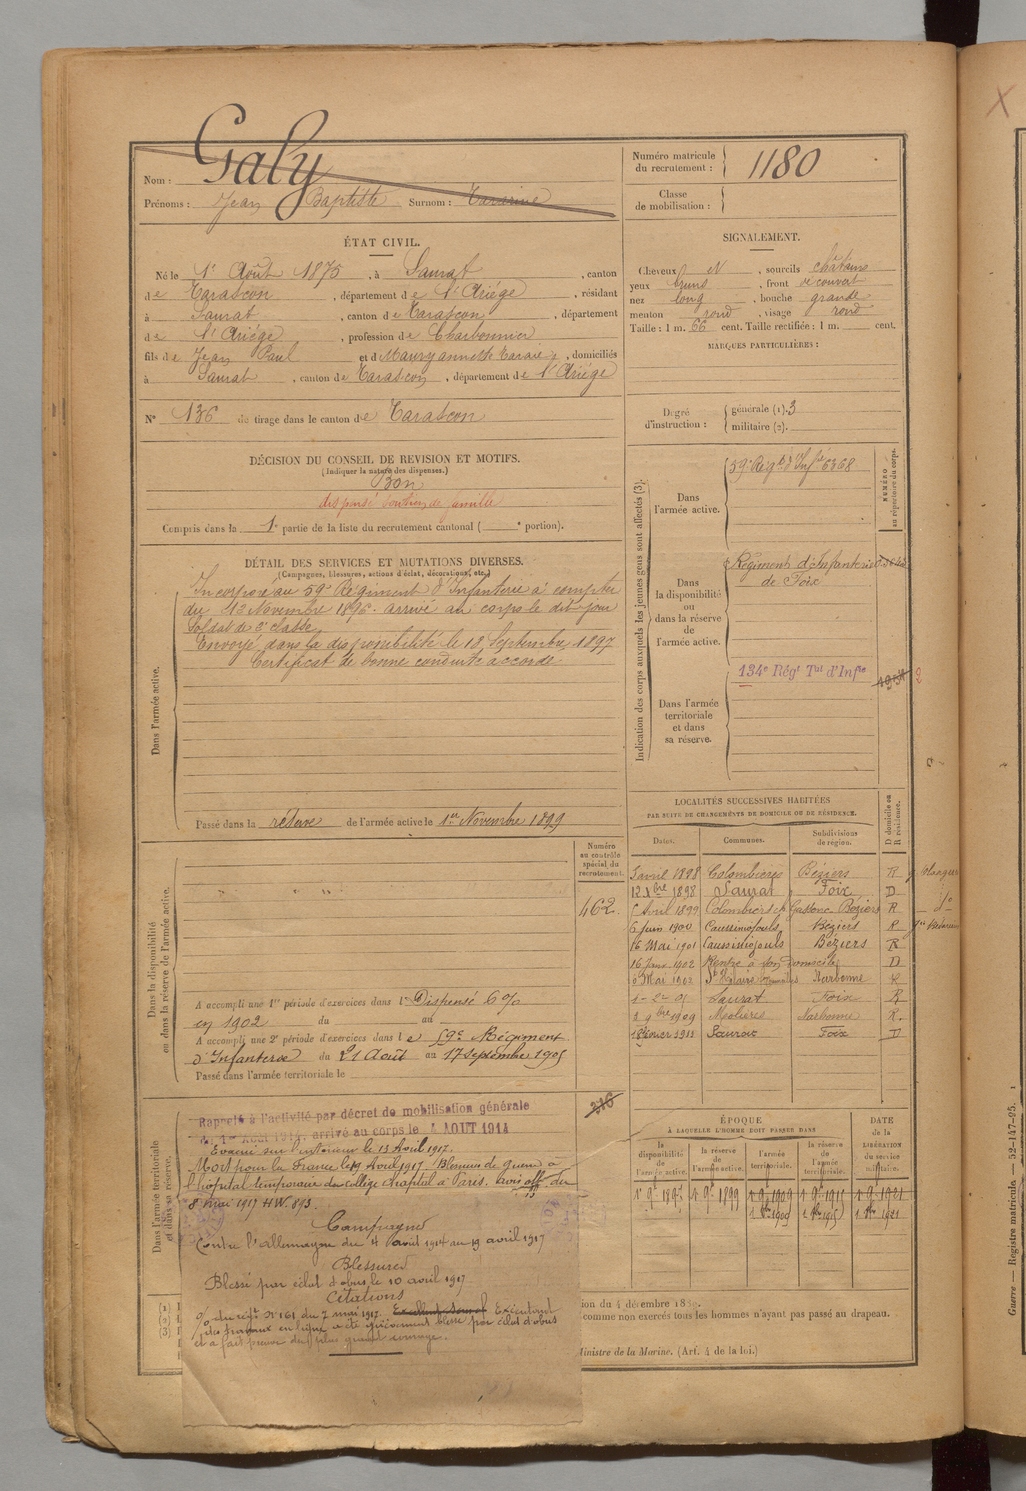 Nom : Galy
Prénoms : Jean Baptiste Surnom :
Numéro matricule du recrutement : 1180
Classe de mobilisation :
ÉTAT CIVIL.
Né le 1er Août 1875, à Saurat, canton
de Tarascon, département de l'Ariége, résidant
à Saurat, canton de Tarascon, département
de l'Ariége, profession de Charbonnier
fils de Jean Paul et d Maury annette, domiciliés
à Saurat, canton de Tarascon, département de l'Ariége
N° 136 de tirage dans le canton de Tarascon
SIGNALEMENT.
Cheveux N, sourcils châtains
yeux bruns, front découvert
nez long, bouche grande
menton rond, visage rond
Taille : 1 m. 66 cent. Taille rectifiée : 1 m. cent.
MARQUES PARTICULIÈRES :
Degré d'instruction : générale (1). 3
militaire (2).
DÉCISION DU CONSEIL DE REVISION ET MOTIFS.
(Indiquer la nature des dispenses.)
Bon
dispensé soutien de famille
Compris dans la 1e partie de la liste du recrutement cantonal ( e portion).
DÉTAIL DES SERVICES ET MUTATIONS DIVERSES.
(Campagnes, blessures, actions d'éclat, décorations, etc.)
Dans l'armée active.
Incorporé au 59e Régiment d'Infanterie à compter
du 12 Novembre 1896. arrivé au corps le dit jour
Soldat de 2e classe
Envoyé dans la disponibilité le 18 Septembre 1897
Certificat de bonne conduite accordé
Passé dans la réserve de l'armée active le 1er Novembre 1899
Indication des corps auxquels les jeunes gens sont affectés (3).
NUMÉRO au répertoire du corps.
Dans l'armée active.
59e Régt d'Infie 6368
Dans la disponibilité ou dans la réserve de l'armée active.
Régiment d'Infanterie
de Foix
Dans l'armée territoriale et dans sa réserve.
134e Régt Tal d'Infie
Dans la disponibilité ou dans la réserve de l'armée active.
Numéro au contrôle spécial du recrutement.
462
A accompli une 1re période d'exercices dans l Dispensé 6 %
en 1902 du au
A accompli une 2e période d'exercices dans l e 59e Régiment
d'Infanterie du 21 Août au 17 Septembre 1905
Passé dans l'armée territoriale le
LOCALITÉS SUCCESSIVES HABITÉES
PAR SUITE DE CHANGEMENTS DE DOMICILE OU DE RÉSIDENCE.
Dates. Communes. Subdivisions de région. D domicile ou R résidence.
5 avril 1898 Colombières Béziers R
12 Xbre 1898 Saurat Foix D
5 Avril 1899 Colombières Béziers R
6 Juin 1900 Caussiniojouls Béziers R
16 Mai 1901 Caussiniojouls Béziers R
16 1902 Rentré à son domicile D
Mai 1902 St Hilaire Narbonne R
1-2-05 Saurat Foix R
3 9bre 1909 Molières Narbonne R.
18 février 1911 Saurat Foix D
Dans l'armée territoriale et dans sa réserve.
Rappelé à l'activité par décret de mobilisation générale
du 1er Août 1914, arrivé au corps le 4 AOUT 1914
Evacué sur l'intérieur le 13 Avril 1917.
Mort pour la France le 19 Avril 1917. Blessures de guerre à
l'hôpital temporaire du collège Chaptal à Paris. avis off du
8 mai 1917 HW. 893
Campagnes
Contre l'allemagne du 4 août 1914 au 19 avril 1917
Blessures
Blessé par éclat d'obus le 10 avril 1917
Citations
O/ du régt N° 161 du 7 mai 1917. Exécutant
des travaux en ligne a été grièvement blessé par éclat d'obus
et a fait preuve du plus grand courage.
ÉPOQUE
A LAQUELLE L'HOMME DOIT PASSER DANS
la disponibilité de l'armée active. la réserve de l'armée active. l'armée territoriale. la réserve de l'armée territoriale.
DATE de la LIBÉRATION du service militaire.
1er 9bre 1899 1 9bre 1909 1 9bre 1915 1 9bre 1921
ion du 4 décembre 1889.
comme non exercés tous les hommes n'ayant pas passé au drapeau.
Ministre de la Marine. (Art. 4 de la loi.)
Guerre — Registre matricule. — 52-147-25.